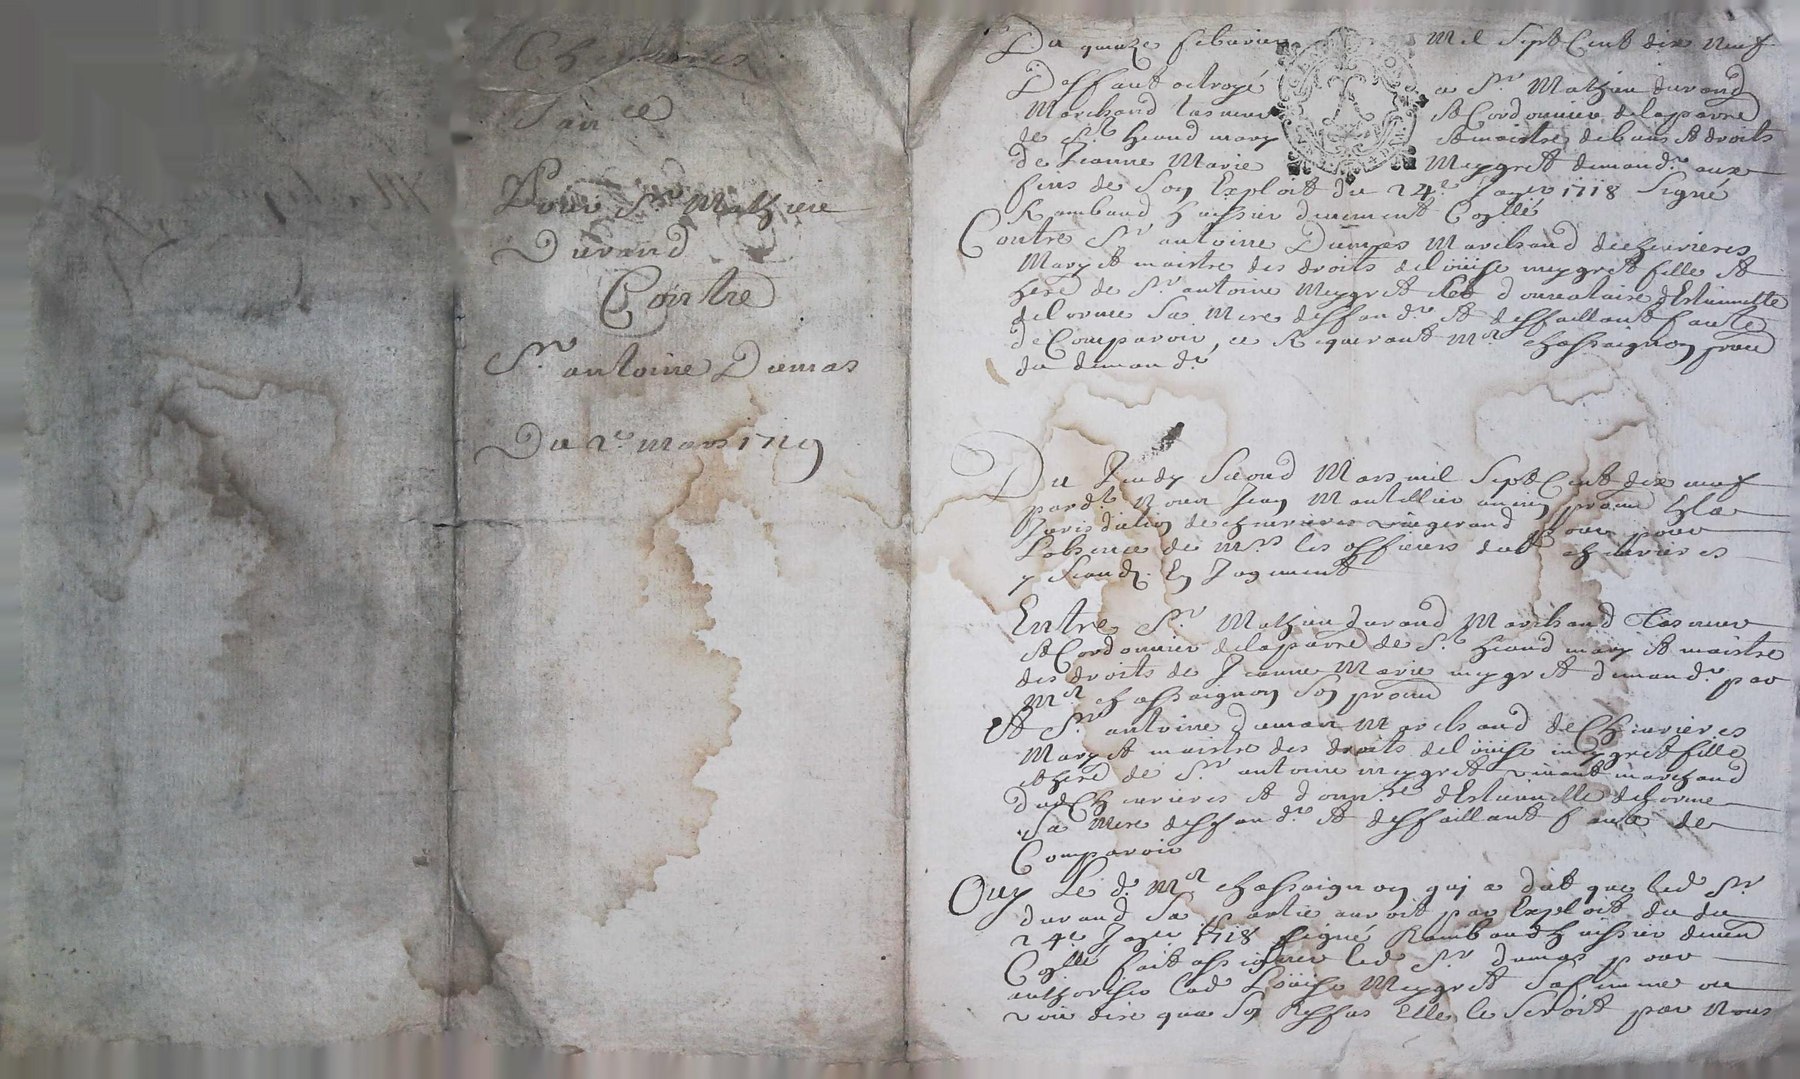 Chevrieres
Pour Sr Mathieu
Durand
Contre
Sr antoine Dumas
Du 2e mars 1719
Du quinze febvrier Mil Sept Cent dix neuf
Deffaut octroyé a Sr Mathieu durand
Marchand tasneur et Cordonnier
de St heand mary et maistre de biens et droits
de Jeanne Marie Meygret demandr aux
fins de Son Exploit du 24e Janer 1718 Signé
Rambaud huissier duement Conllé
Contre Sr antoine Dumas Marchand de chevrieres
Mary et maistre des droits de loüise meygret fille et
here de Sr antoine Meygret et donnataire d'Estiennette
delorme Sa Mere deffandr et deffaillant faute
de Comparoir, ce Requerant Mre chassaignon procu
du demandr
Du Jeudy Second Mars mil Sept Cent dix neuf
pardt Nous Jean Mantellier ancien procur En la
Jurisdiction de chevrieres
Labsence de Mrs les officiers dudt chevrieres
y Seandt En Jugement
Entre Sr Mathieu durand Marchand Tasneur
et Cordonnier de St heand mary et maistre
des droits de Jeanne Marie meygret demandr par
Mre chassaignon Son procur
Et Sr antoine dumas Marchand de Chevrieres
Mary et maistre des droits de loüise meygret fille
et here de Sr antoine meygret vivant marchand
dud Chevrieres et donnre d'Estiennette delorme
Sa Mere deffandr et deffaillant faute de
Comparoir
Ouy Le d. Mre chassaignon qui a dit que led Sr
durand Sa partie auroit par Exploit du du
24e Janer 1718 Signé Rambaud huissier duemt
Conllé fait assigner led Sr dumas pour
authoriser lad Loüise Meygret Sa femme ou
voir dire que Son Reffus Elle le Seroit par Nous